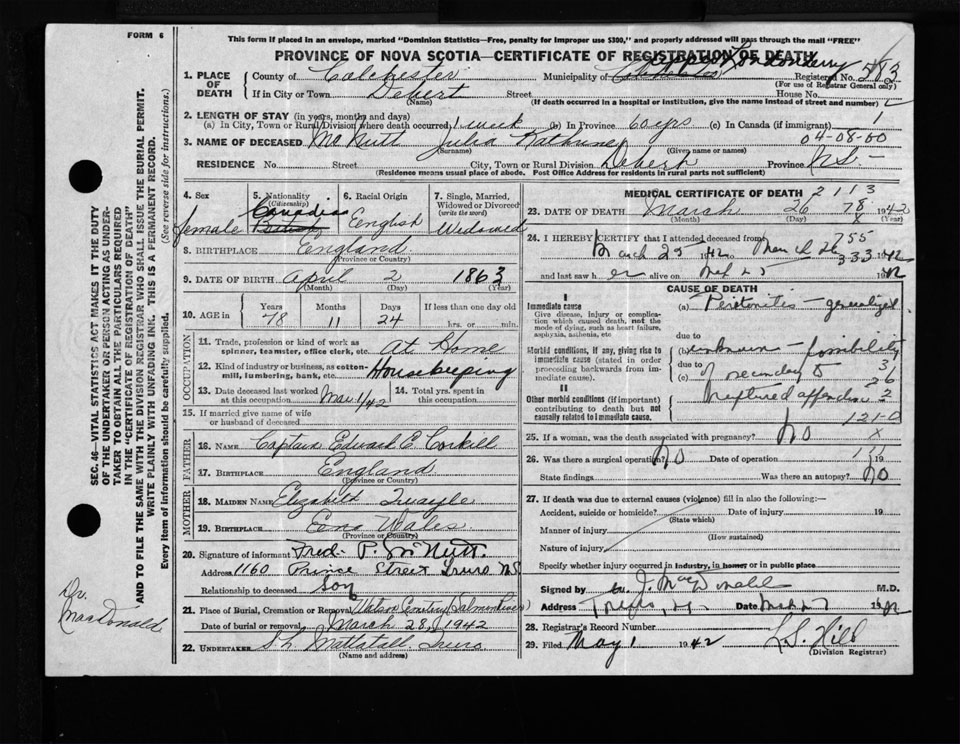 FORM 6
This form if placed in an envelope, marked "Dominion Statistics—Free, penalty for improper use $300," and properly addressed will pass through the mail "FREE"
PROVINCE OF NOVA SCOTIA—CERTIFICATE OF REGISTRATION OF DEATH
1. PLACE OF DEATH
County of Colchester Municipality of Londonderry Registered No. 583
(For use of Registrar General only)
If in City or Town Debert Street House No.
(Name) (If death occurred in a hospital or institution, give the name instead of street and number)
2. LENGTH OF STAY (in years, months and days)
(a) In City, Town or Rural Division where death occurred 1 week (b) In Province 60 yrs (c) In Canada (if immigrant)
04-08-60
3. NAME OF DECEASED McNutt Julia
(Surname) (Given name or names)
RESIDENCE No. Street City, Town or Rural Division Debert Province N.S.
(Residence means usual place of abode. Post Office Address for residents in rural parts not sufficient)
4. Sex female
5. Nationality (Citizenship) Canadian
6. Racial Origin English
7. Single, Married, Widowed or Divorced (write the word) Widowed
8. BIRTHPLACE England
(Province or Country)
9. DATE OF BIRTH April 2 1863
(Month) (Day) (Year)
10. AGE in Years 78 Months 11 Days 24 If less than one day old hrs. or min.
OCCUPATION
11. Trade, profession or kind of work as spinner, teamster, office clerk, etc. At Home
12. Kind of industry or business, as cotton-mill, lumbering, bank, etc. Housekeeping
13. Date deceased last worked at this occupation Mar 1/42 14. Total yrs. spent in this occupation.
15. If married give name of wife or husband of deceased
FATHER
16. NAME Captain Edward C. Corkill
17. BIRTHPLACE England
(Province or Country)
MOTHER
18. MAIDEN NAME Elizabeth Quayle
19. BIRTHPLACE Eng Wales
(Province or Country)
20. Signature of informant Fred. P. McNutt.
Address 1160 Prince Street Truro N.S
Relationship to deceased Son
21. Place of Burial, Cremation or Removal Watson Cemetery (Salmon River)
Date of burial or removal March 28, 1942
22. UNDERTAKER Mattatall Truro
(Name and address)
MEDICAL CERTIFICATE OF DEATH 2113
23. DATE OF DEATH March 26 78 1942
(Month) (Day) X (Year)
24. I HEREBY CERTIFY that I attended deceased from 755
March 25 1942 March 26 333 1942
and last saw her alive on Mch 25 1942
CAUSE OF DEATH
I
Immediate cause
Give disease, injury or complication which caused death, not the mode of dying, such as heart failure, asphyxia, asthenia, etc
(a) Peritonitis — generalized
due to
Morbid conditions, if any, giving rise to immediate cause (stated in order preceding backwards from immediate cause).
(b) unknown — possibility
due to 3
(c) secondary to 26
II
Other morbid conditions (if important) contributing to death but not causally related to immediate cause.
ruptured appendix 2
121-0
25. If a woman, was the death associated with pregnancy? No X
26. Was there a surgical operation? No Date of operation 19
State findings Was there an autopsy? No
27. If death was due to external causes (violence) fill in also the following:—
Accident, suicide or homicide? Date of injury 19
(State which)
Manner of injury
(How sustained)
Nature of injury
Specify whether injury occurred in industry, in home or in public place
Signed by J. MacDonald M.D.
Address Date Mch 27 1942
28. Registrar's Record Number
29. Filed May 1 1942 L.S. Hill
(Division Registrar)
SEC. 46—VITAL STATISTICS ACT MAKES IT THE DUTY OF THE UNDERTAKER OR PERSON ACTING AS UNDERTAKER TO OBTAIN ALL THE PARTICULARS REQUIRED IN THE "CERTIFICATE OF REGISTRATION OF DEATH" AND TO FILE THE SAME WITH THE DIVISION REGISTRAR WHO SHALL ISSUE THE BURIAL PERMIT.
WRITE PLAINLY WITH UNFADING INK. THIS IS A PERMANENT RECORD.
Every item of information should be carefully supplied. (See reverse side for instructions.)
Dr. MacDonald